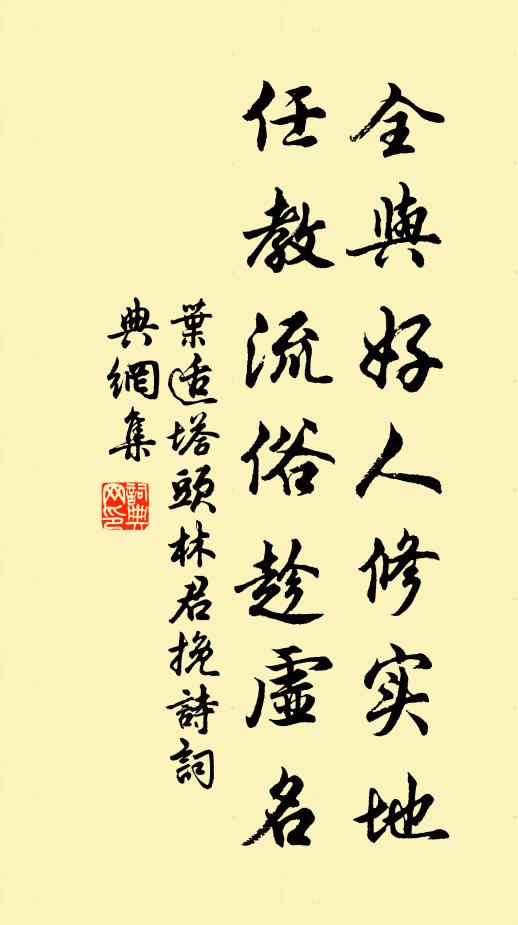 全與好人修实地
任教流俗趁虛名
葉适塔頭林君挽詩詞
典網集
詞典网印